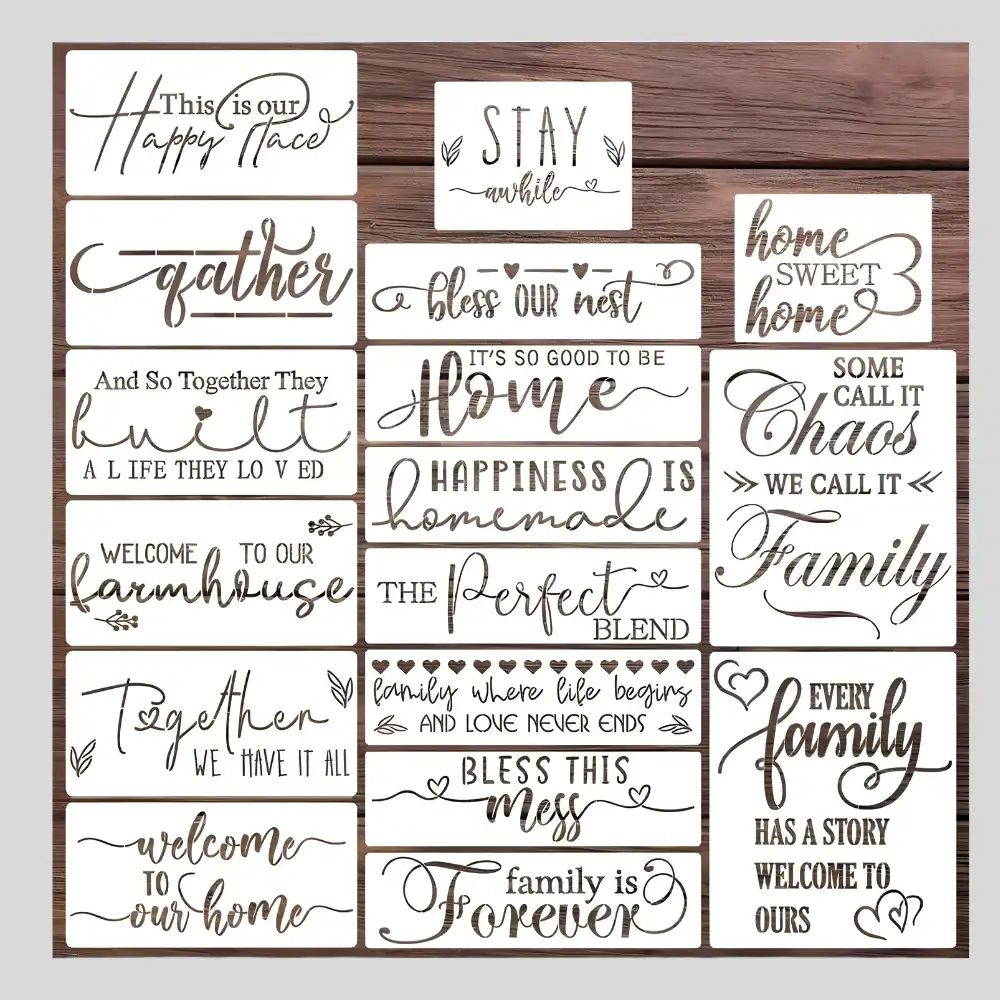 This is our
Happy Place
gather
And So Together They
built
A LIFE THEY LOVED
WELCOME TO OUR
farmhouse
Together
WE HAVE IT ALL
welcome
TO
our home
STAY
awhile
bless OUR nest
IT'S SO GOOD TO BE
Home
HAPPINESS IS
homemade
THE Perfect
BLEND
family where life begins
AND LOVE NEVER ENDS
BLESS THIS
mess
family is
Forever
home
SWEET
home
SOME
CALL IT
Chaos
WE CALL IT
Family
EVERY
family
HAS A STORY
WELCOME TO
OURS